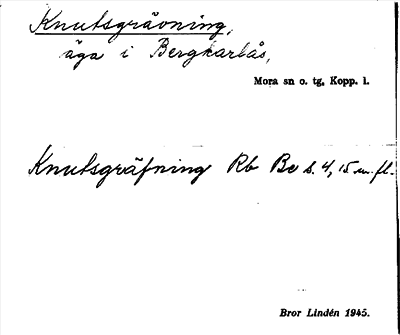 Knutsgrävning,
äga i Bergkarlås,
Mora sn o. tg. Kopp. l.
Knutsgräfning Rb Be s. 4, 15 m. fl.
Bror Lindén 1945.